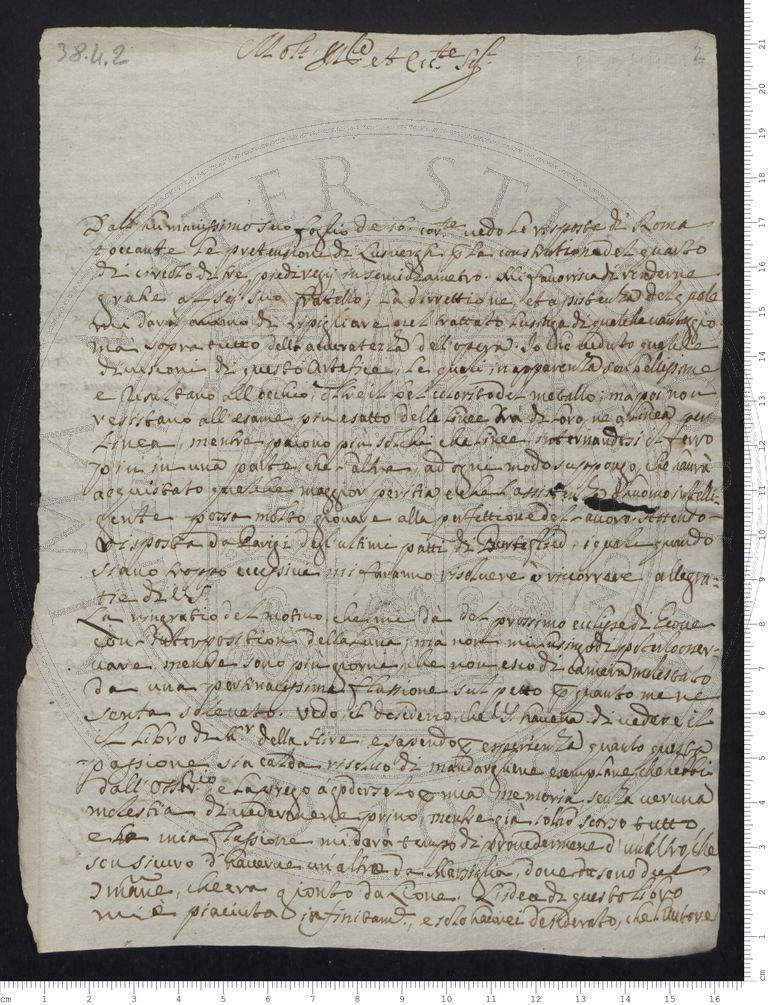 38.4.2
2
Molt Ill.re et Ecc.te Sig.r
Dall'humanissimo suo foglio de 16. cor.te vedo le risposte di Roma
toccante le pretensioni di Lusverg. p la constitutione del quarto
di circolo di tre piedi regij in semidiametro. Mi favorisca di renderne
gratie al Sig.r suo fratello, la dirrettione, et assistenza del quale
mi darà animo di ripigliare pel trattato
ma sopra tutto della accuratezza dell'opera. Io hò veduto qualche
divisioni di questo Artefice, le quali in apparenza son bellissime
e risultano all'occhio, oltre il bel colorito del metallo; ma poi non
restano all'esame più esatto delle linee trà di loro, ne a linea per
linea, mentre paiono più solchi che linee internandosi il ferro
più in una parte, che l'altra, ad ogni modo suppongo, che haurà
acquistato qualche maggior peritia e che l'assistenza d'huomo intelli-
gente possa molto giovare alla perfettione del lavoro. Attendo
risposta da Parigi degl'ultimi patti di Buterfield, i quali quando
siano troppo eccessivi mi faranno risolvere à ricorrere alle gra-
tie di V.S.
La ringratio del motivo, che mi dà del prossimo eclisse di Giove
con l'interposition della luna; ma non mi lusingo di poterlo osser-
vare mentre sono più giorni, che non esco di camera molestato
da una pertinacissima flussione sul petto p quanto me ne
senta solevato. Vedo il desiderio, che V.S. haveva di vedere il
il libro di Mr della Hire, e sapendo p esperienza quanto questa
passione sia calda risolvo di mandargliene esemplare, che hebbi
dall' e la prego à goderselo p mia memoria senza veruna
molestia di vedermene privo mentre già l'hò scorso tutto
e la mia flussione mi darà tempo di provedermene d'un altro, che
son sicuro d'haverne un altro da Marsiglia, dove
che era gionto da Lione. L'idea di questo libro
mi è piaciuta infinitam.te, e solo haurei desiderato, che l'Autore